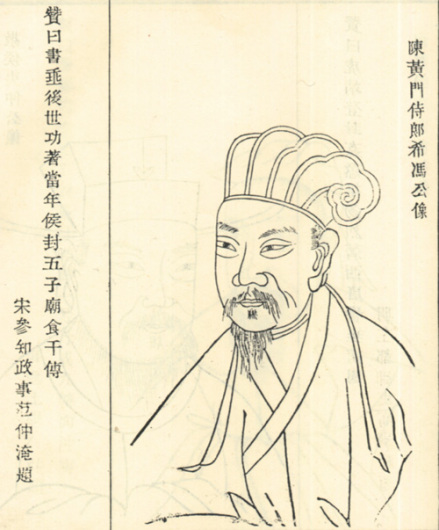 陳黃門侍郎希馮公像
贊曰書垂後世功著當年侯封五子廟食千傳
宋參知政事范仲淹題